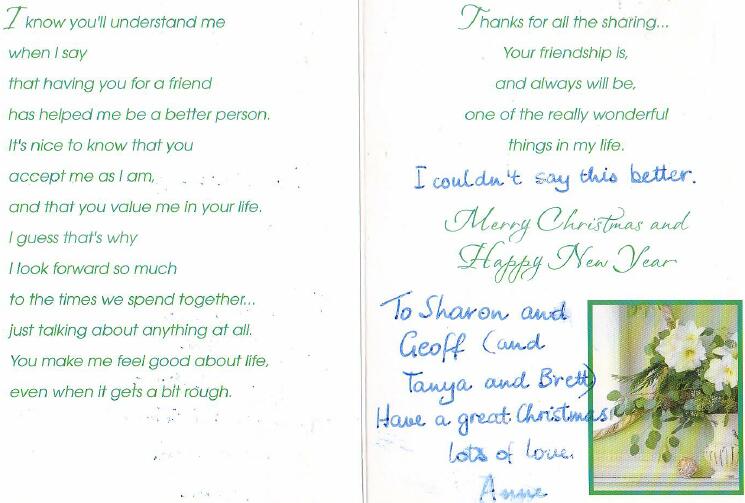 I know you'll understand me
when I say
that having you for a friend
has helped me be a better person.
It's nice to know that you
accept me as I am,
and that you value me in your life.
I guess that's why
I look forward so much
to the times we spend together...
just talking about anything at all.
You make me feel good about life,
even when it gets a bit rough.
Thanks for all the sharing...
Your friendship is,
and always will be,
one of the really wonderful
things in my life.
I couldn't say this better.
Merry Christmas and
Happy New Year
To Sharon and
Geoff (and
Tanya and Brett)
Have a great Christmas
lots of love.
Anne